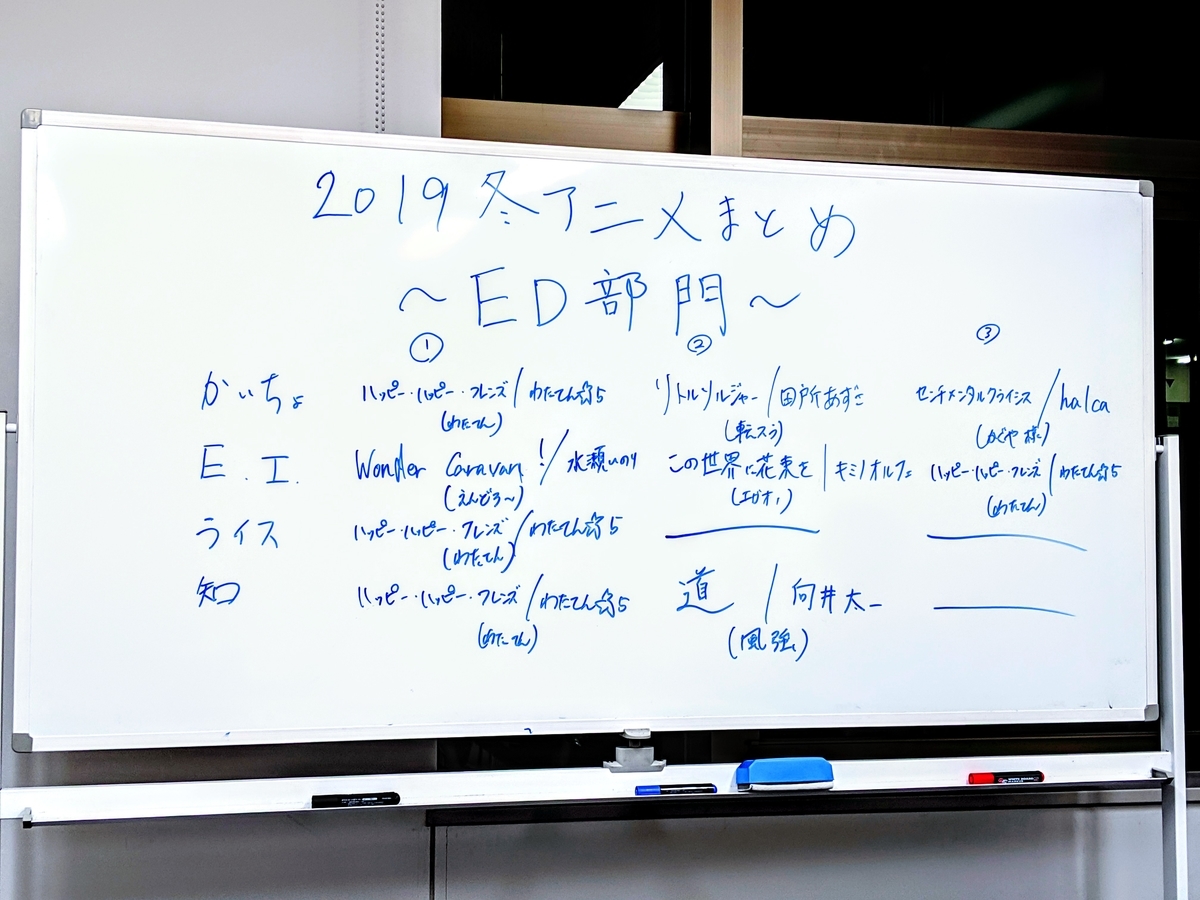 2019冬アニメまとめ
～ED部門～
① ② ③
かいちょ ハッピー・ハッピー・フレンズ/わたてん☆5 リトルソルジャー/田所あずさ センチメンタルクライシス/halca
(わたてん) (転スラ) (かぐや様)
E.I. Wonder Caravan!/水瀬いのり この世界に花束を/キミノオルフェ ハッピー・ハッピー・フレンズ/わたてん☆5
(えんどろ～) (エガオ) (わたてん)
ライス ハッピー・ハッピー・フレンズ/わたてん☆5
(わたてん)
知 ハッピー・ハッピー・フレンズ/わたてん☆5 道/向井太一
(わたてん) (風強)